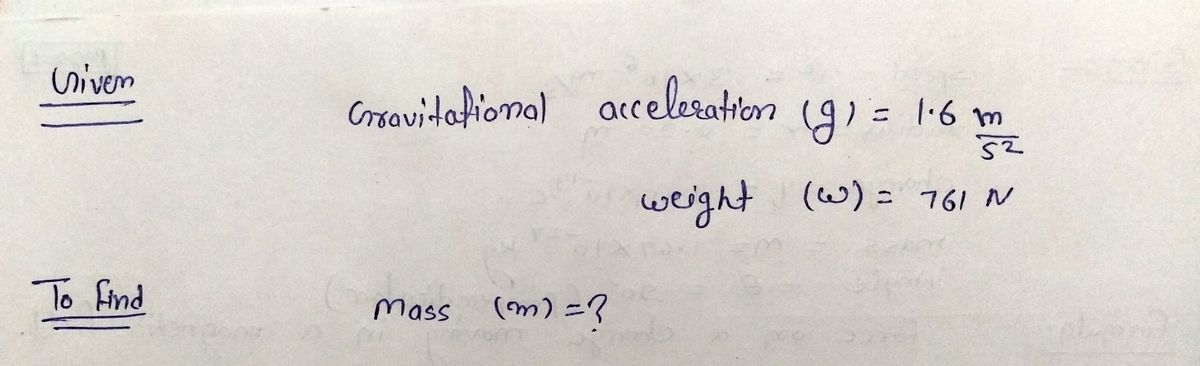 Given
Gravitational acceleration (g) = 1.6 m/s2
weight (w) = 761 N
To find
Mass (m) = ?